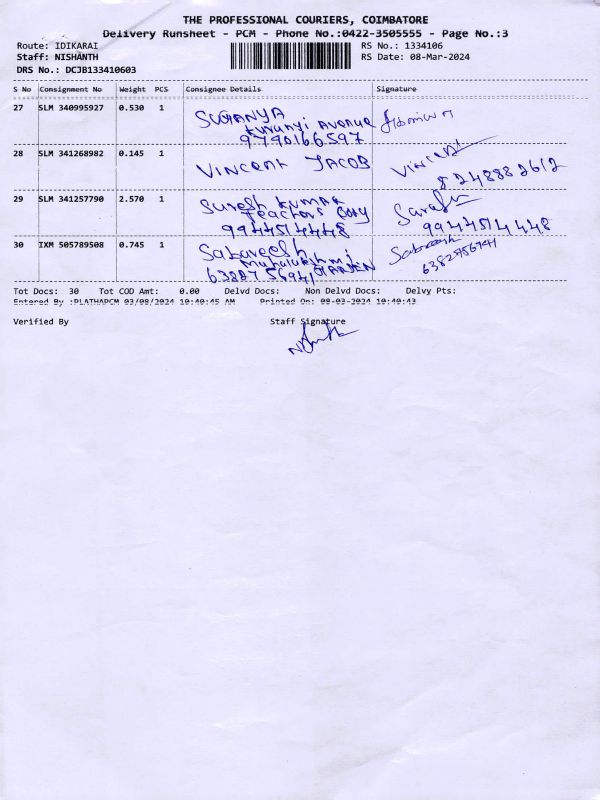 THE PROFESSIONAL COURIERS, COIMBATORE
Delivery Runsheet - PCM - Phone No.:0422-3505555 - Page No.:3
Route: IDIKARAI RS No.: 1334106
Staff: NISHANTH RS Date: 08-Mar-2024
DRS No.: DCJB133410603
S No Consignment No Weight PCS Consignee Details Signature
27 SLM 340995927 0.530 1 SUGANYA
Avenue
9790166597
28 SLM 341268982 0.145 1 VINCENT JACOB Vincent
8248882612
29 SLM 341257790 2.570 1 Suresh kumar
Teachers Colony
9944514448 9944514448
30 IXM 505789508 0.745 1 Sabareesh
Mahalakshmi
GARDEN
Tot Docs: 30 Tot COD Amt: 0.00 Delvd Docs: Non Delvd Docs: Delvy Pts:
Entered By :PLATHAPCM 03/08/2024 10:40:45 AM Printed On: 08-03-2024 10:40:43
Verified By Staff Signature